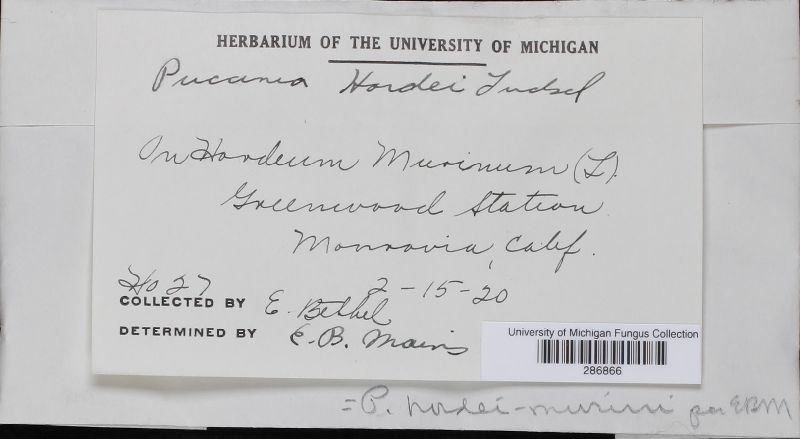 HERBARIUM OF THE UNIVERSITY OF MICHIGAN
Puccinia Hordei
On Hordeum Murinum (L).
Greenwood Station
Monrovia, Calif.
Ho 27 2-15-20
COLLECTED BY E. Bethel
DETERMINED BY E. B. Mains
University of Michigan Fungus Collection
286866
= P. hordei-murini per EBM